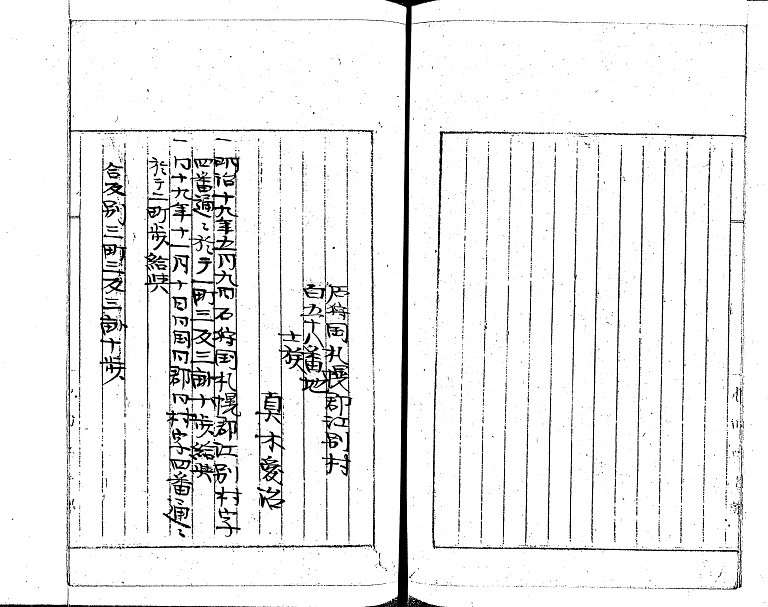 石狩国札幌郡江別村
百五十八番地
士族
真木愛治
一明治十九年五月九日石狩国札幌郡江別村字
四番通ニ於テ一町三反三畝十歩給与
一同十九年十一月十日同国同郡同村字四番通ニ
於テ二町歩給与
合反別三町三反三畝十歩